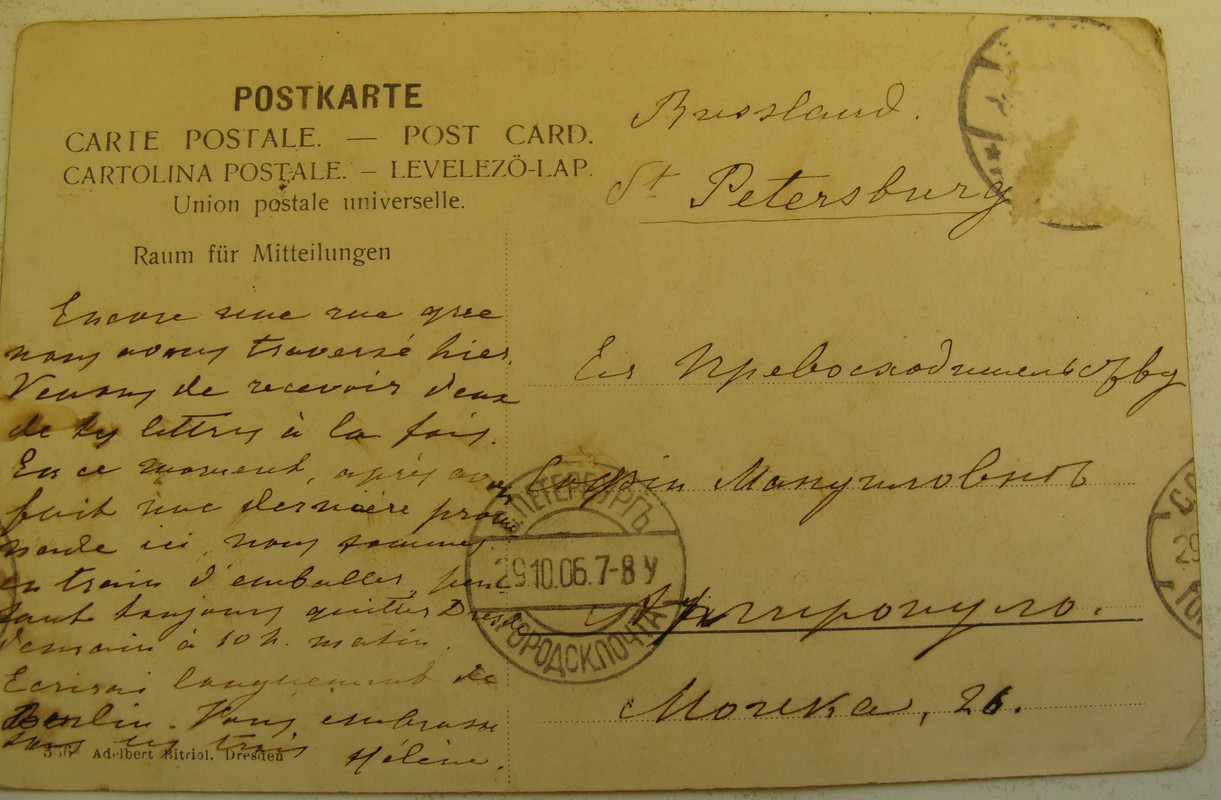 POSTKARTE
CARTE POSTALE. — POST CARD.
CARTOLINA POSTALE. — LEVELEZÖ-LAP.
Union postale universelle.
Raum für Mitteilungen
Encore une rue que
nous avons traversé hier.
Venons de recevoir deux
de tes lettres à la fois.
En ce moment, après avoir
fait une dernière prome
nade ici, nous sommes
en train d'emballer, pen
sant toujours quitter Dresde
demain à 10 h. matin.
Ecrirai longuement de
Berlin. Vous embrasse
tous les trois
Hélène.
Adelbert Bitriol. Dresden
Russland.
St Petersburg
Ея Превосходительству
Софіи Мануиловнѣ
Аргиропуло.
Мойка, 26.
С.ПЕТЕРБУРГЪ
29.10.06.7-8 У
ГОРОДСК.ПОЧТА
29